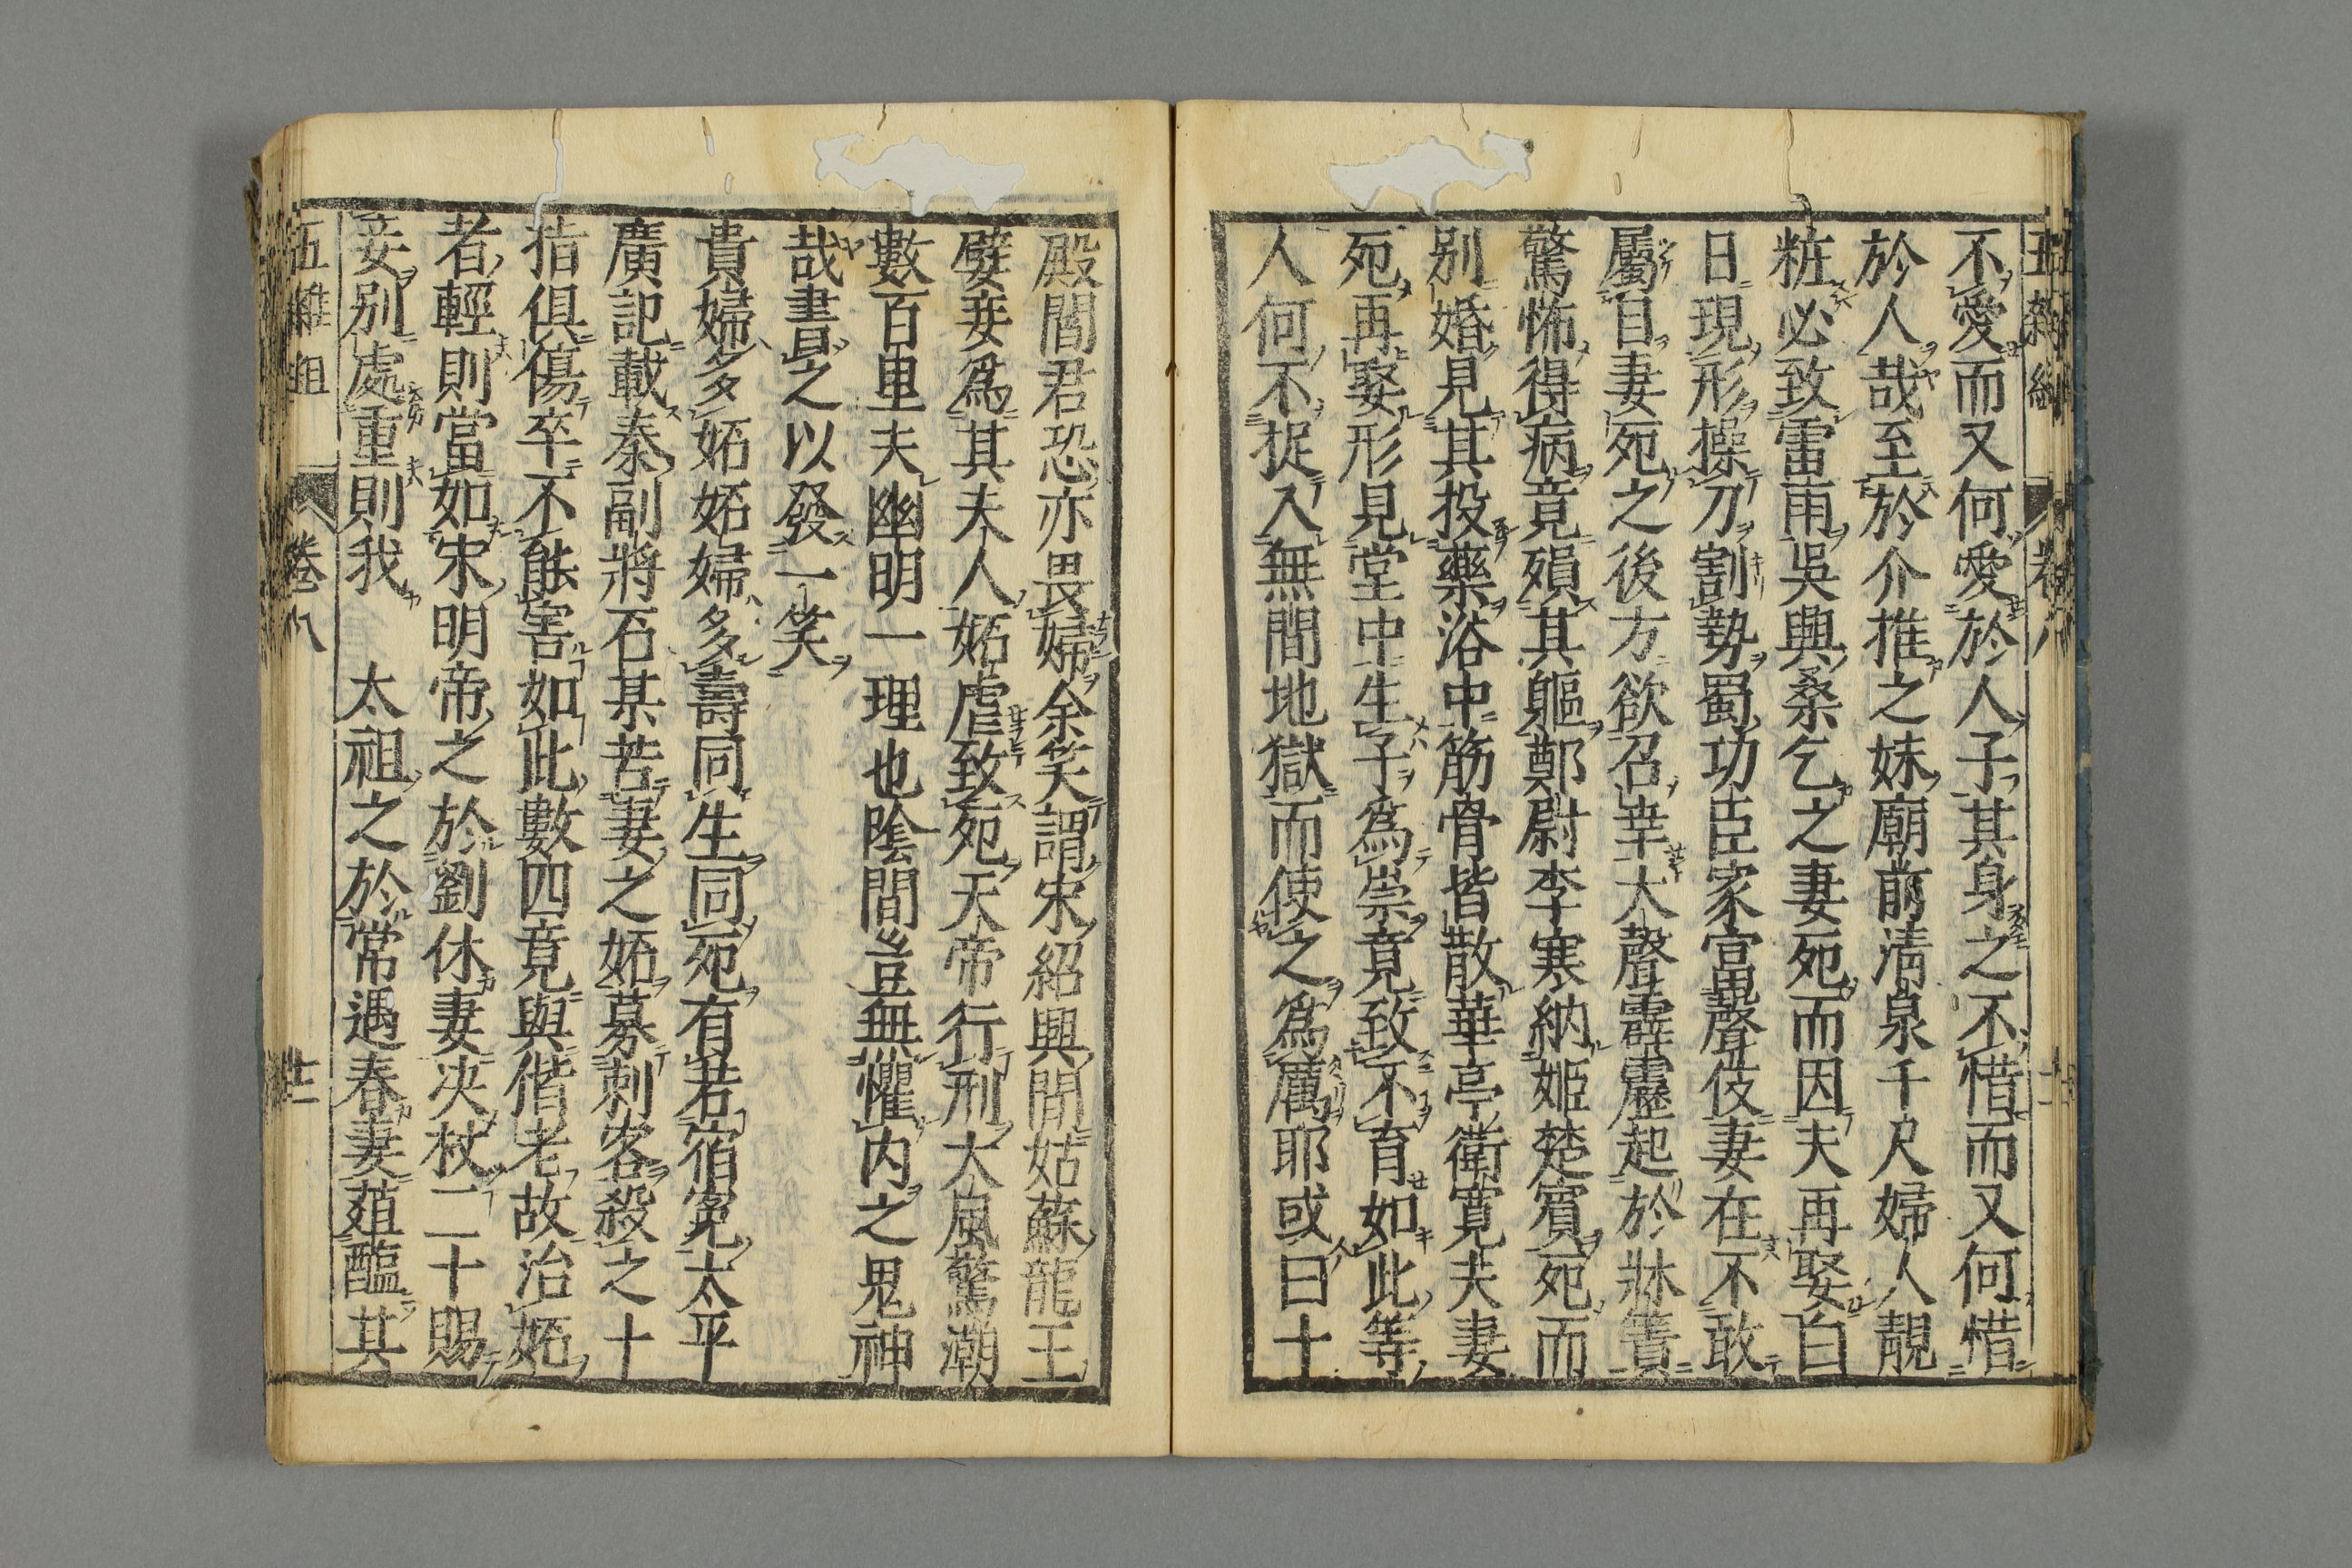 五雜組 卷八
不愛而又何愛於人子其身之不惜而又何惜
於人哉至於介推之妹廟前清泉千尺婦人靚
粧必致雷雨吳興桑乞之妻死而因夫再娶白
日現形操刀割勢蜀功臣家富聲伎妻在不敢
屬目妻死之後方欲召幸大聲霹靂起於牀簀
驚怖得病竟殞其軀鄭尉李寒納姬楚賓死而
別婚見其投藥浴中筋骨皆散華亭衛寬夫妻
死再娶形見堂中生子為崇竟致不育如此等
人何不捉入無間地獄而使之為厲耶或曰十
殿閻君恐亦畏婦余笑謂宋紹興間姑蘇龍王
嬖妾為其夫人妬虐致死天帝行刑大風驚潮
數百里夫幽明一理也陰間豈無懼內之鬼神
哉書之以發一笑
貴婦多妬妬婦多壽同生同死有若宿寃太平
廣記載秦副將石某苦妻之妬募刺客殺之十
指俱傷卒不能害如此數四竟與偕老故治妬
者輕則當如宋明帝之於劉休妻決杖二十賜
妾別處重則我 太祖之於常遇春妻葅醢其
五雜組 卷八 廿二